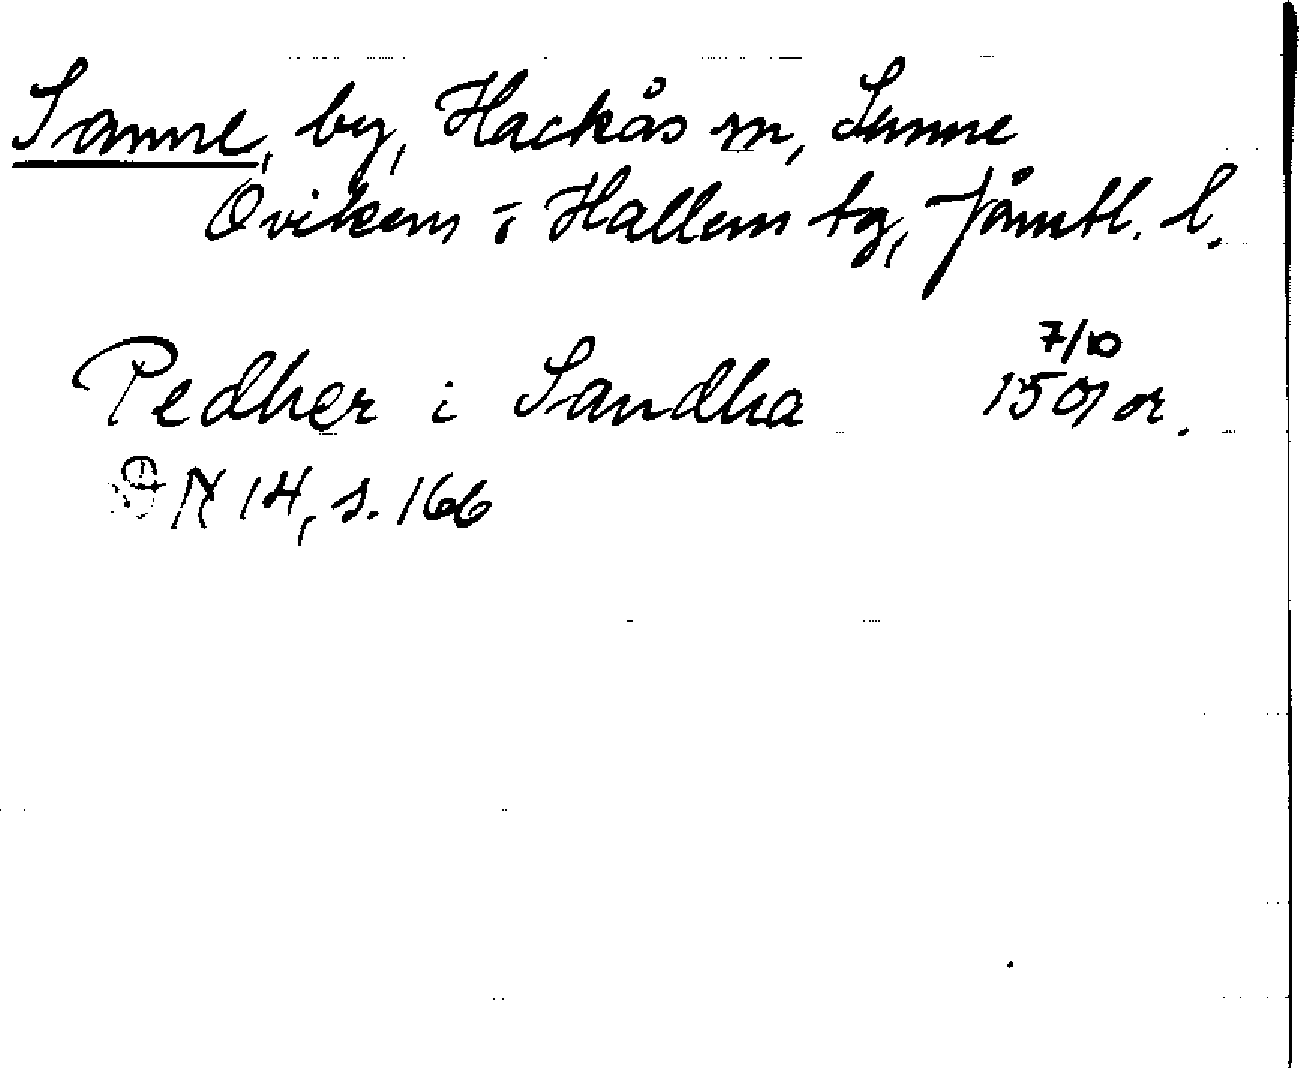 Sanne, by, Hackås sn, Sunne
Oviken o Hallen tg, Jämtl. l.
7/10
Pedher i Sandha 1501 or.
DN 14, s. 166